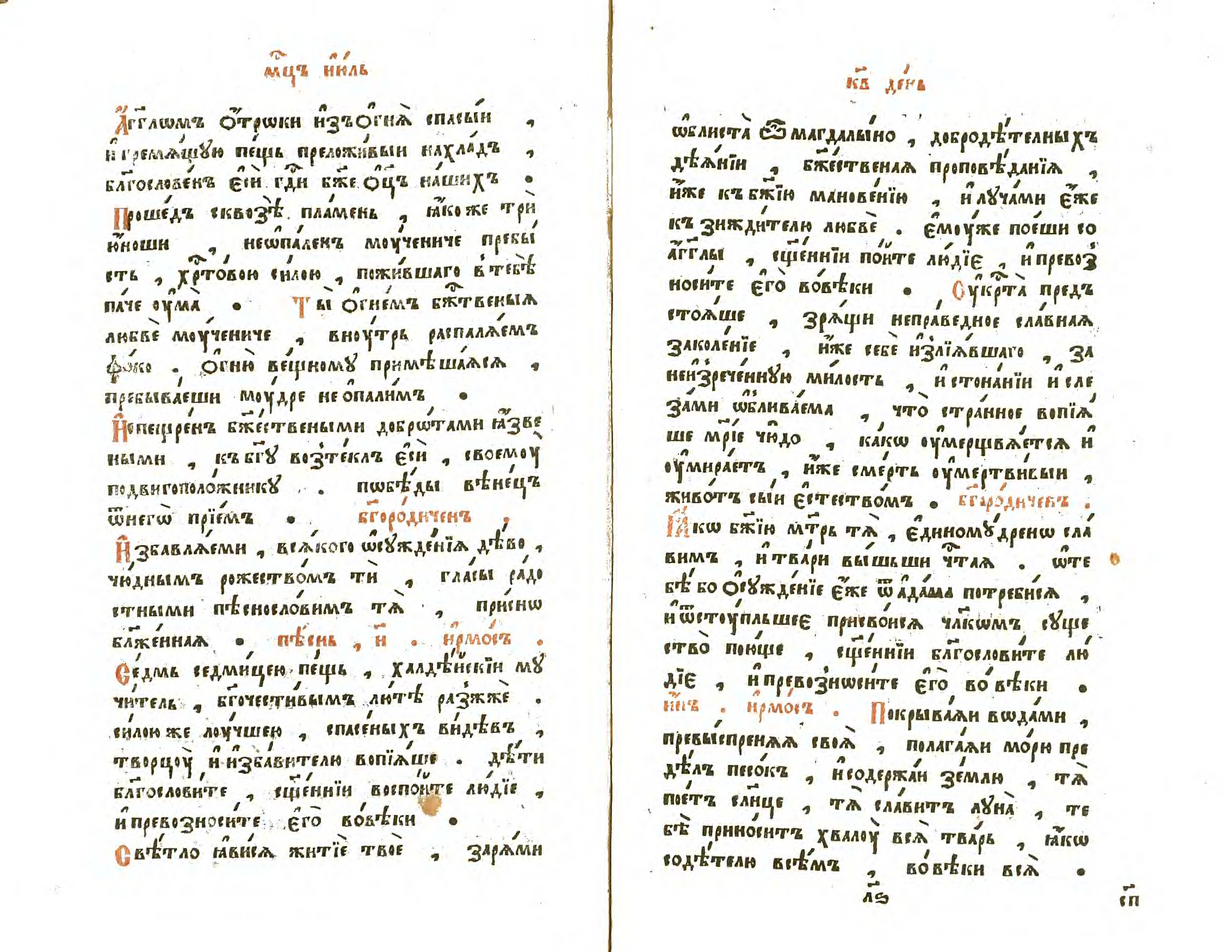 мц҃ъ ию́ль
А҆́гг҃лѡмъ ѻ҆́трѡки и҆зъѻгнѧ̀ спасы́и ,
и҆гремѧ́щꙋю пе́щь преложи́выи нахла́дъ ,
бл҃гослове́нъ є҆сѝ гд҃и бж҃е ѻ҆ц҃ъ на́шихъ .
Проше́дъ сквозѣ̀ пла́мень , ꙗ҆́коже три
ю҆́ноши , неѡпале́нъ мꙋ́чениче пребы́
сть , хрⷭ҇то́вою си́лою , пожи́вшаго в̾тебѣ̀
па́че ᲂу҆ма̀ . Ты̀ ѻ҆гне́мъ бж҃твеныѧ
любвѐ мᲂу́чениче , внᲂу́трь распалѧ́емъ
фо́ко . Ѻ҆гню̀ ве́щномꙋ примѣша́ѧсѧ ,
пребыва́еши мᲂу́дре не ѡ҆пали́мъ .
И҆спещре́нъ бж҃е́ствеными добрѡ́тами ꙗ҆́зве
ными , къ бг҃ꙋ возте́клъ є҆сѝ , своемᲂу̀
подвигополо́жникꙋ . пѡбѣ́ды вѣне́цъ
ѿнегѡ̀ прїе́мъ . бг҃оро́диченъ .
И҆збавлѧ́еми , всѧ́кого ѡ҆сꙋжде́нїѧ дв҃о ,
чю́днымъ рожество́мъ тѝ , гла́сы ра́до
стными пѣсносло́вимъ тѧ̀ , при́снѡ
бл҃же́ннаѧ . пѣ́снь , и҃ . и҆рмо́съ .
Се́дмь седми́цею пе́щь , халдѣ́искїи мꙋ
чи́тель , бг҃очести́вымъ лю́тѣ разжжѐ .
си́лою же лᲂу́чшею , спасе́ныхъ ви́дѣвъ ,
творцᲂу̀ и҆ и҆зба́вителю вопїѧ́ше . дѣ́ти
бл҃гослови́те , сщ҃е́ннїи воспо́ите лю́дїе ,
и҆ превозноси́те є҆го̀ во́вѣки .
Свѣ́тло ꙗ҆ви́сѧ житїѐ твоѐ , зарѧ́ми
кв҃ де́нь
ѡ҆блиста̀ ѿ магдалы́но , добродѣ́телныхъ
дѣѧ́нїи , бж҃е́ственаѧ проповѣ́данїѧ ,
и҆́же къ бж҃їю манове́нїю , и҆ лꙋча́ми є҆́же
къ зижди́телю любвѐ . є҆мᲂу́же пое́ши со
а҆́гг҃лы , сщ҃е́ннїи по́ите лю́дїе , и҆ превоз
носи́те є҆го̀ во́вѣки . Оу҆крⷭ҇та̀ предъ
стоѧ́ше , зрѧ́щи непра́ведное сла́внаѧ
заколе́нїе , и҆́же себѐ и҆злїѧ́вшаго , за
неи҆зрече́ннꙋю ми́лость , и҆ стона́нїи и҆ сле
за́ми ѡ҆блива́ема , что̀ стра́нное вопїѧ́
ше мр҃і́е чю́до , ка́кѡ ᲂу҆мерщвлѧ́етсѧ и҆
ᲂу҆мира́етъ , и҆́же сме́рть ᲂу҆мертви́выи ,
живо́тъ сы́и є҆стество́мъ . бг҃оро́диченъ .
Ꙗ҆́кѡ бж҃їю мт҃рь тѧ̀ , є҆диномꙋ́дренѡ сла́
вимъ , и҆ тва́ри вы́шьши чⷭ҇таѧ . ѡ҆ те
бѣ́ бо ѻ҆сꙋжде́нїе є҆́же ѿ а҆да́ма потреби́сѧ ,
и҆ ѿстᲂу́пльшеє присво́исѧ чл҃кѡмъ сꙋще
ство̀ пою́ще , сщ҃е́ннїи бл҃гослови́те лю́
дїе , и҆ превознѡси́те є҆го̀ во́вѣки .
и҆́нъ . и҆рмо́съ . Покрыва́ѧи вѡда́ми ,
превы́спренѧѧ своѧ̀ , полага́ѧи мо́рю пре
дѣ́лъ песо́къ , и҆ содержа́и зе́млю , тѧ̀
пое́тъ сл҃нце , тѧ̀ сла́витъ лꙋна̀ , те
бѣ̀ прино́ситъ хвалᲂу̀ всѧ̀ тва́рь , ꙗ҆́кѡ
содѣ́телю всѣ́мъ , во́вѣки всѧ̀ .
лѕ҃ сп҃